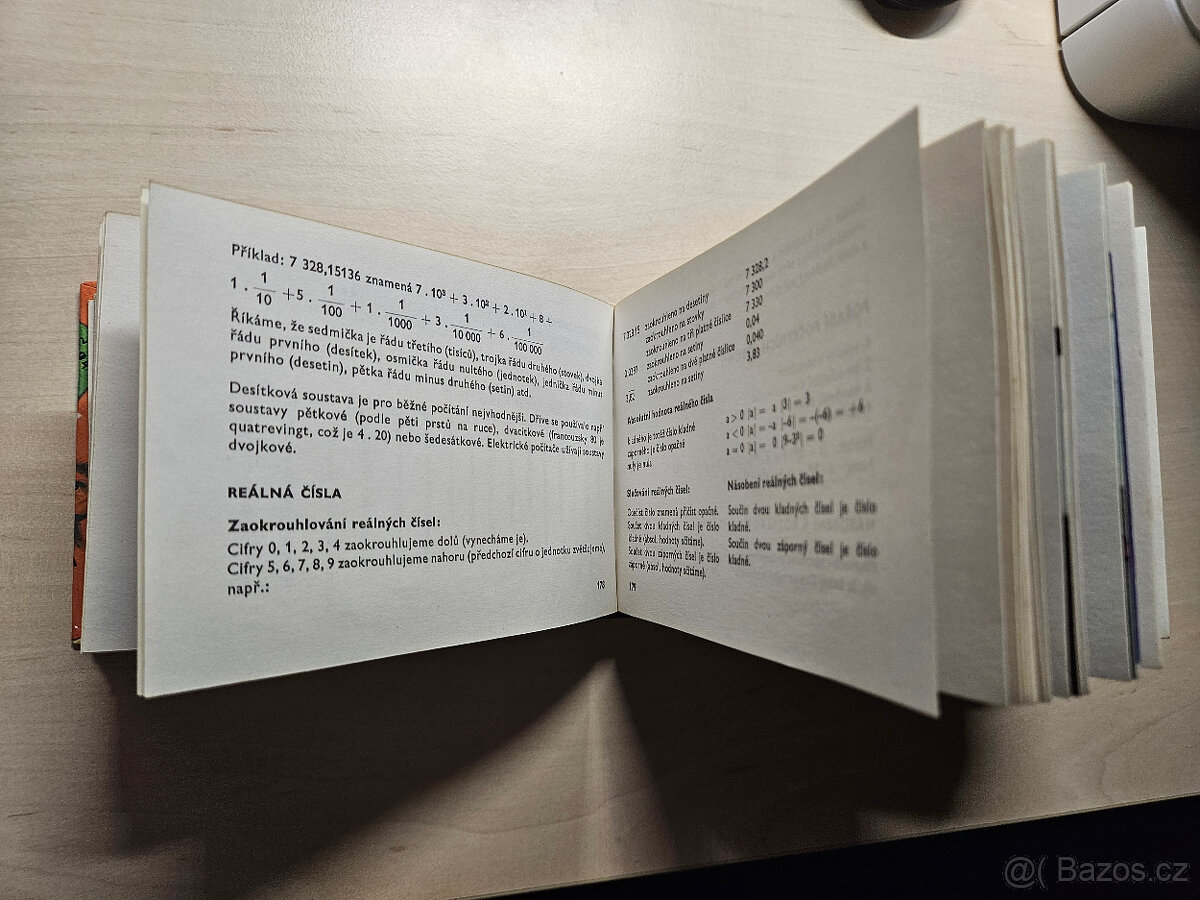 Příklad: 7 328,15136 znamená 7 . 10³ + 3 . 10² + 2 . 10¹ + 8 +
1 . 1/10 + 5 . 1/100 + 1 . 1/1000 + 3 . 1/10 000 + 6 . 1/100 000
Říkáme, že sedmička je řádu třetího (tisíců), trojka řádu druhého (stovek), dvojka
řádu prvního (desítek), osmička řádu nultého (jednotek), jednička řádu minus
prvního (desetin), pětka řádu minus druhého (setin) atd.
Desítková soustava je pro běžné počítání nejvhodnější. Dříve se používalo např
soustavy pětkové (podle pěti prstů na ruce), dvacítkové (francouzsky 80 je
quatrevingt, což je 4 . 20) nebo šedesátkové. Elektrické počítače užívají soustavy
dvojkové.
REÁLNÁ ČÍSLA
Zaokrouhlování reálných čísel:
Cifry 0, 1, 2, 3, 4 zaokrouhlujeme dolů (vynecháme je).
Cifry 5, 6, 7, 8, 9 zaokrouhlujeme nahoru (předchozí cifru o jednotku zvětšujeme),
např.:
178
zaokrouhleno na desetiny 7 328,2
zaokrouhleno na stovky 7 300
zaokrouhleno na tři platné číslice 7 330
zaokrouhleno na setiny 0,04
zaokrouhleno na dvě platné číslice 0,040
zaokrouhleno na setiny 3,83
Absolutní hodnota reálného čísla
je totéž číslo kladné a > 0 |a| = a |3| = 3
záporného je číslo opačné a < 0 |a| = -a |-6| = -(-6) = +6
nuly je nula. a = 0 |a| = 0 |9-3²| = 0
Slučování reálných čísel:
Odečíst číslo znamená přičíst opačné.
Součet dvou kladných čísel je číslo
kladné (absol. hodnoty sčítáme).
Součet dvou záporných čísel je číslo
záporné (absol. hodnoty sčítáme).
Násobení reálných čísel:
Součin dvou kladných čísel je číslo
kladné.
Součin dvou záporný čísel je číslo
kladné.
179
@( Bazos.cz